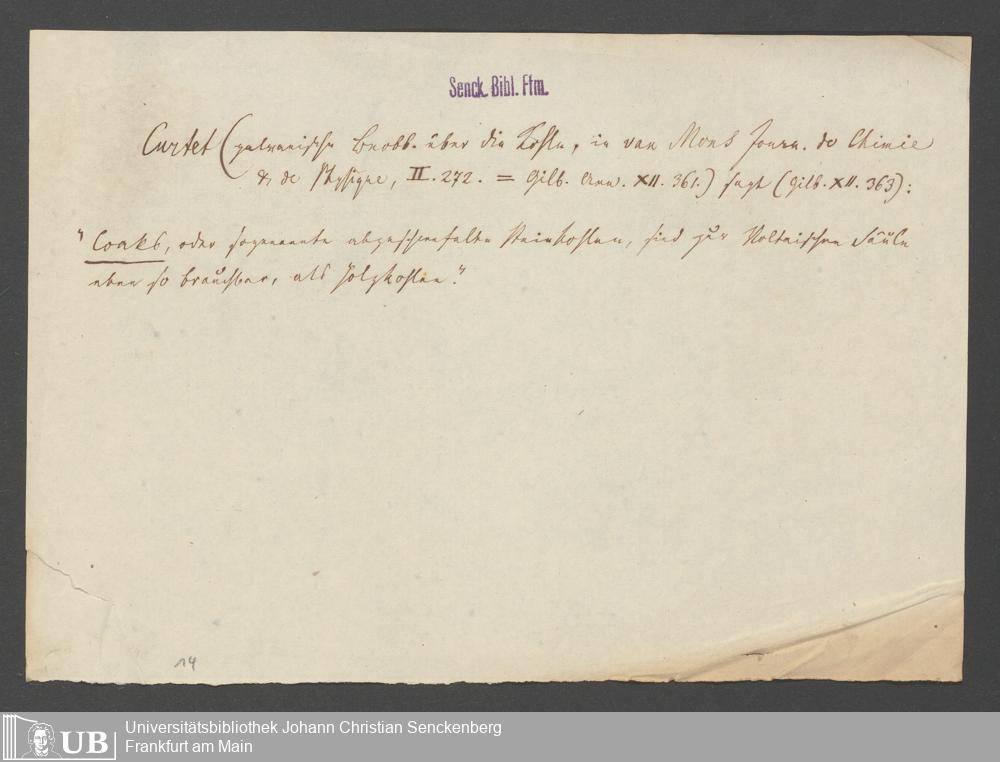 Senck. Bibl. Ffm.
Curtet (galvanische Beobb. über die Kohle, in van Mons Journ. de Chimie
& de Physique, II. 272. = Gilb. Ann. XII. 361.) sagt (Gilb. XII. 363):
"Coaks, oder sogenannte abgeschwefelte Steinkohlen, sind zur Voltaischen Säule
eben so brauchbar, als Holzkohlen."
14
UB
Universitätsbibliothek Johann Christian Senckenberg
Frankfurt am Main